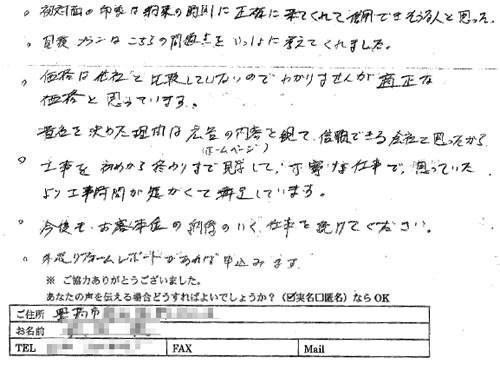 。初対面の印象は約束の時間に正確に来てくれて信用できそうな人と思った。
。見積プランはこちらの問題点をいっしょに考えてくれました。
。価格は他社と比較していないのでわかりませんが適正な
価格と思っています。
貴社を決めた理由は広告の内容を観て、信頼できる会社と思ったから
(ホームページ)
。工事を初めから終わりまで見学して、丁寧な仕事で、思っていた
より工事時間が短かくて満足しています。
。今後も、お客本位の納得のいく仕事を続けてください。
。外装リフォームレポートがあれば申込みます
※ ご協力ありがとうございました。
あなたの声を伝える場合どうすればよいでしょうか？（☑実名□匿名）なら OK
ご住所
お名前
TEL FAX Mail